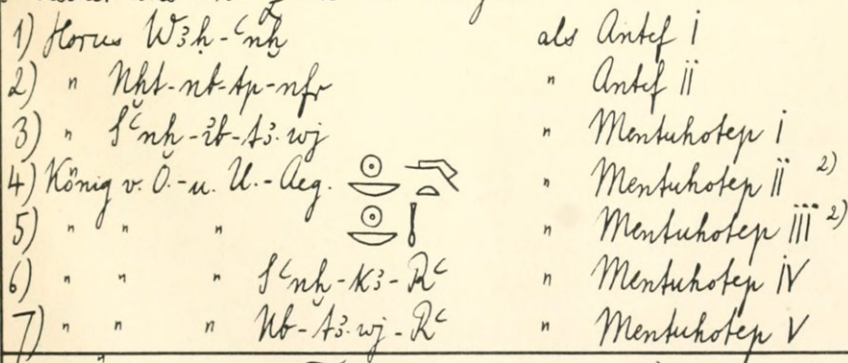 1) Horus Wȝḥ-ꜥnḫ als Antef I
2) " Nḫt-nb-tp-nfr " Antef II
3) " Sꜥnḫ-ib-tȝ.wj " Mentuhotep I
4) König v. O.-u. U.-Aeg. 𓇳𓎟𓐪𓏏 " Mentuhotep II 2)
5) " " " 𓇳𓎟𓊤 " Mentuhotep III 2)
6) " " " Sꜥnḫ-kȝ-Rꜥ " Mentuhotep IV
7) " " " Nb-tȝ.wj-Rꜥ " Mentuhotep V